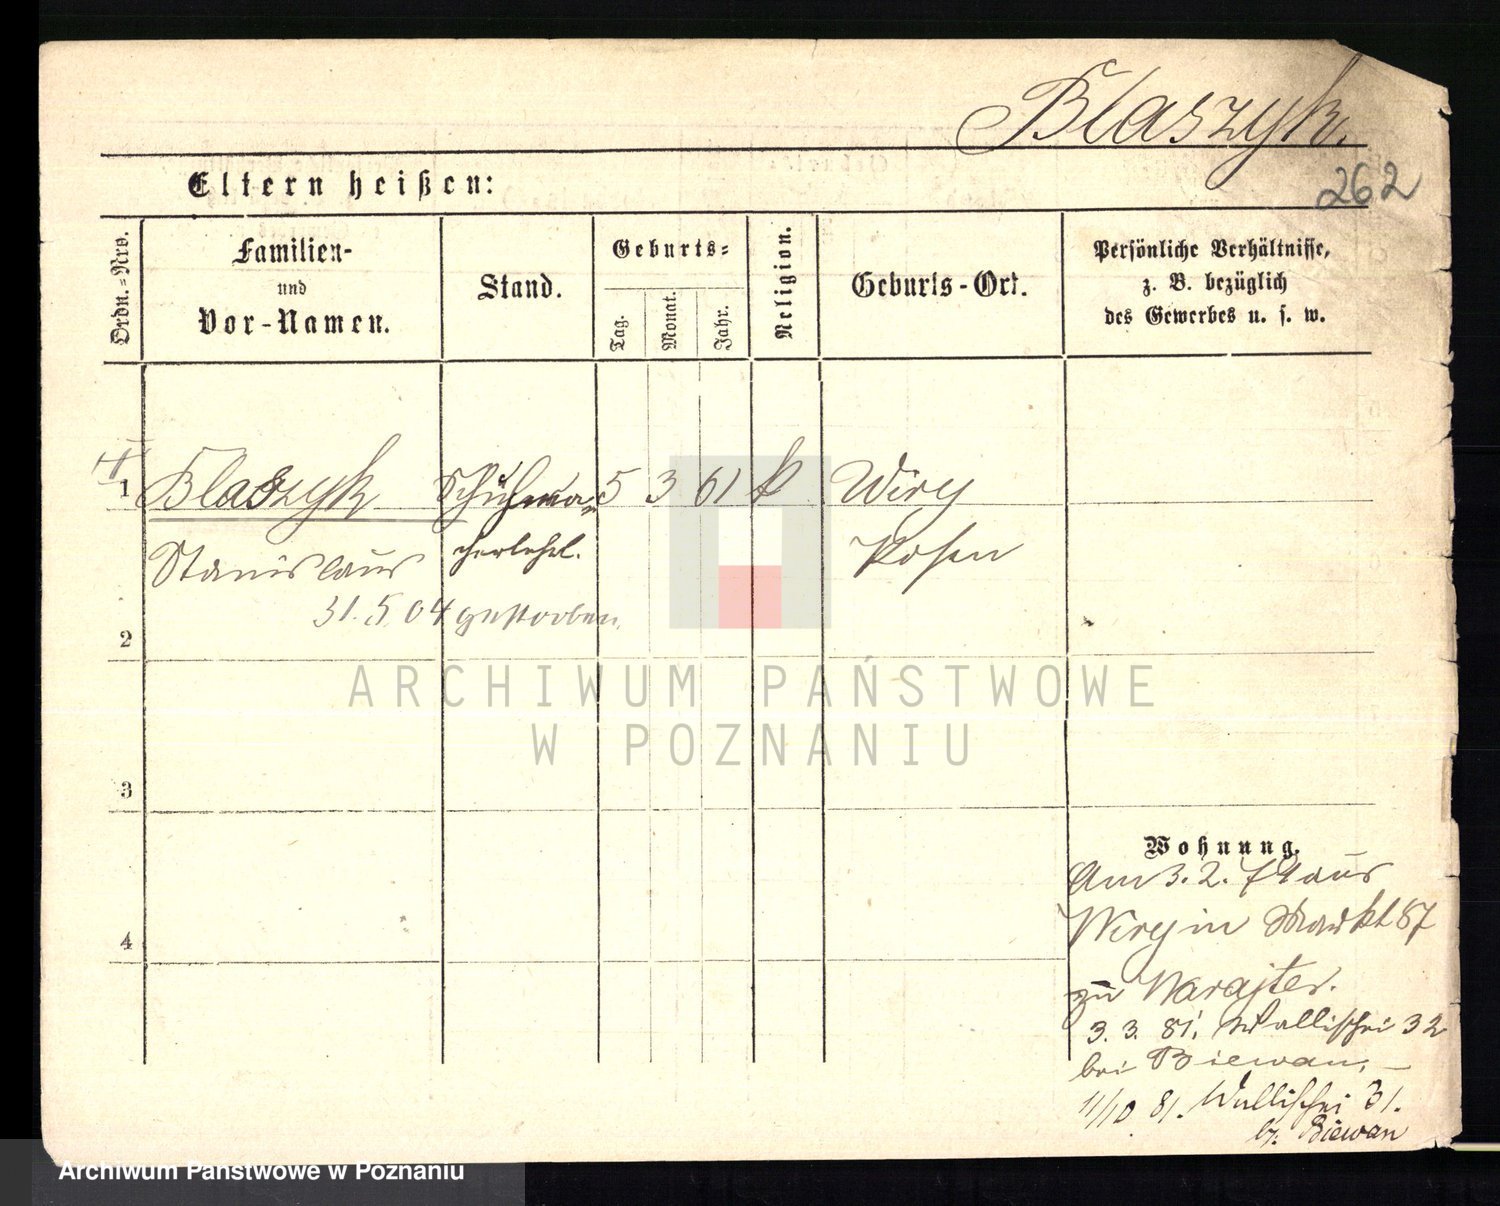 Blaszyk.
262
Eltern heißen:
Ordn.-Nro.
Familien-
und
Vor-Namen.
Stand.
Geburts-
Tag.
Monat.
Jahr.
Religion.
Geburts-Ort.
Persönliche Verhältnisse,
z. B. bezüglich
des Gewerbes u. s. w.
1 Blaszyk Schuhma- 5 3 61 k Wiry
Stanislaus cherlehrl. Posen
31.5.04 gestorben.
2
ARCHIWUM PAŃSTWOWE
W POZNANIU
3
Wohnung.
Am 3.2.79 aus
Wiry in Markt 87
zu
3.3.81. Wallischei 32
bei Biewan.
4
11/10 81. Wallischei 31.
b. Biewan
Archiwum Państwowe w Poznaniu